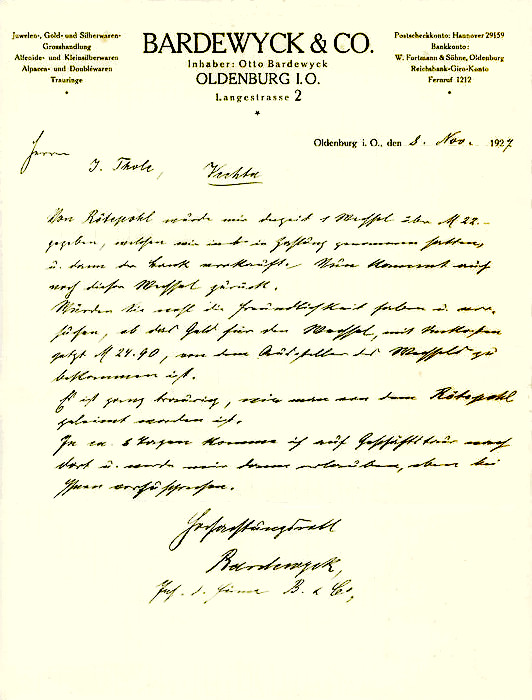 Juwelen-, Gold- und Silberwaren-
Grosshandlung
Alfenide- und Kleinsilberwaren
Alpacca- und Doubléwaren
Trauringe
BARDEWYCK & CO.
Inhaber: Otto Bardewyck
OLDENBURG I.O.
Langestrasse 2
Postscheckkonto: Hannover 29159
Bankkonto:
W. Fortmann & Söhne, Oldenburg
Reichsbank-Giro-Konto
Fernruf 1212
Oldenburg i. O., den 8. Nov. 1927
Herrn
J. Thole, Vechta
Von Rötepohl wurde mir derzeit 1 Wechsel über M 22.-
gegeben, welchen wir in Zahlung genommen hatten,
u. dann der Bank verkauft. Nun kommt auch
noch dieser Wechsel zurück.
Würden Sie wohl die Freundlichkeit haben u. ver-
suchen, ob das Geld für den Wechsel, mit Unkosten
jetzt M 24.90, von dem Aussteller des Wechsels zu
bekommen ist.
Es ist ganz traurig, wie man von dem Rötepohl
geleimt worden ist.
In ca. 6 Tagen komme ich auf Geschäftstour nach
dort u. werde mir dann erlauben, eben bei
Ihnen vorzusprechen.
Hochachtungsvoll
Bardewyck,
Inh. d. Firma B. & Co,